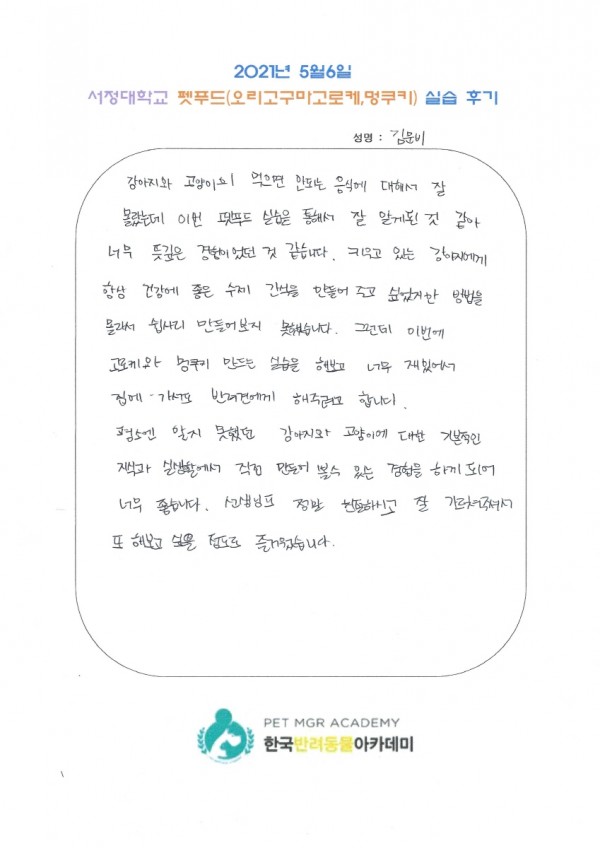 2021년 5월6일
서정대학교 펫푸드(오리고구마고로케,멍쿠키) 실습 후기
성명 : 김문비
강아지와 고양이의 먹으면 안되는 음식에 대해서 잘
몰랐는데 이번 펫푸드 실습을 통해서 잘 알게된 것 같아
너무 뜻깊은 경험이었던 것 같습니다. 키우고 있는 강아지에게
항상 건강에 좋은 수제 간식을 만들어 주고 싶었지만 방법을
몰라서 쉽사리 만들어보지 못했습니다. 그런데 이번에
고로케와 멍쿠키 만드는 실습을 해보고 너무 재밌어서
집에 가서도 반려견에게 해주려고 합니다.
평소엔 알지 못했던 강아지와 고양이에 대한 기본적인
지식과 실생활에서 직접 만들어 볼수 있는 경험을 하게 되어
너무 좋습니다. 선생님도 정말 친절하시고 잘 가르쳐주셔서
또 해보고 싶을 정도로 즐거웠습니다.
PET MGR ACADEMY
한국반려동물아카데미